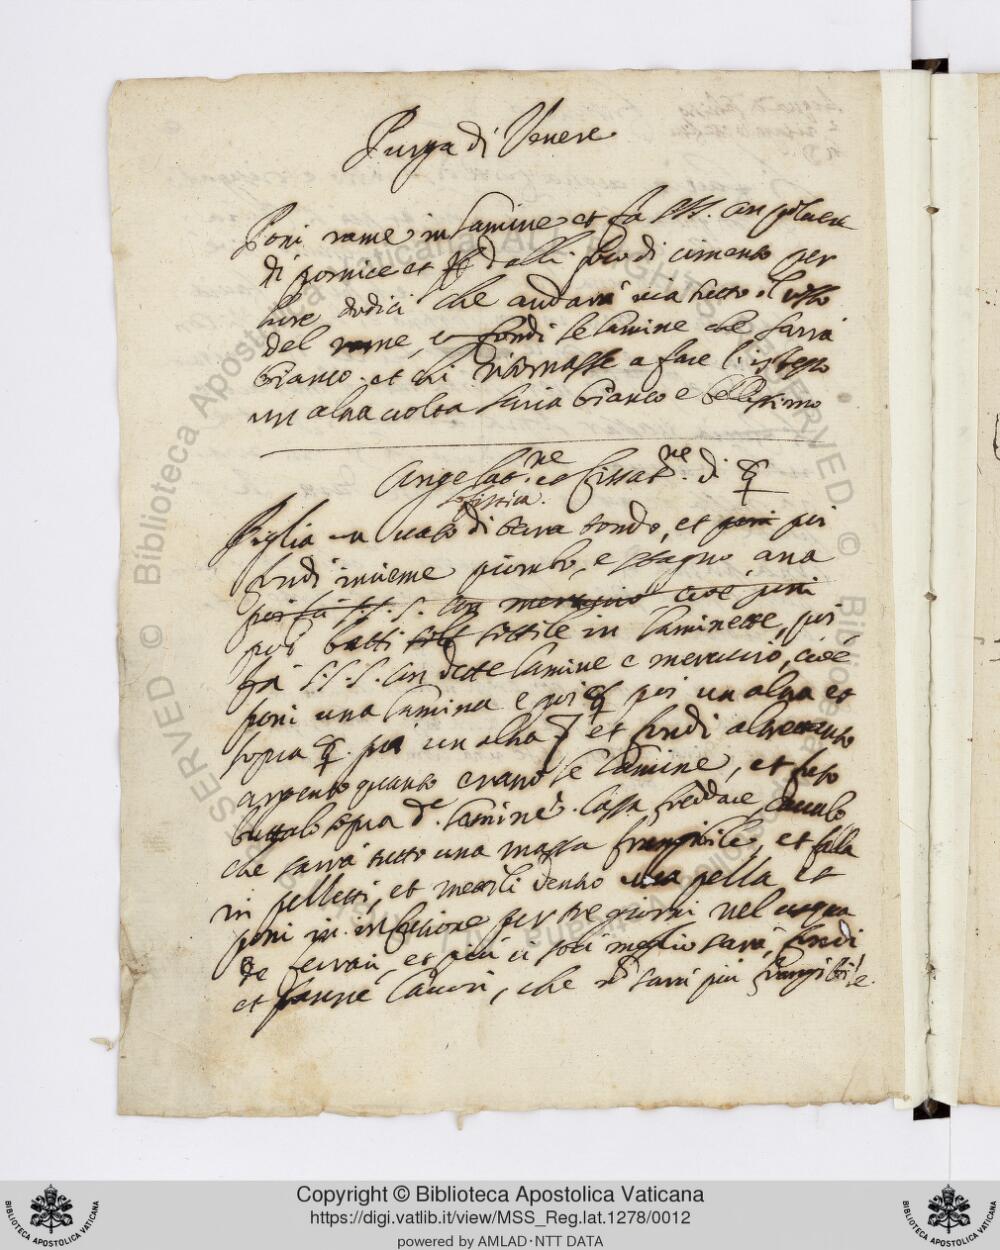 Purga di Venere
Poni rame in lamine et fa SSS. con poluere
di pomice et dalli foco di cimento per
hore dodici che andarà via tutto il rosso
del rame, e fondi le lamine che sarrà
bianco. et chi ritornasse a fare l'istesso
un altra uolta saria bianco e bellissimo
Congelat.ne et fissat.ne di ☿
Piglia un uaso di terra tondo, et poi
fondi insieme piombo, e stagno ana
poi fa S. S. S. con mercurio cioè poni
poi batti sottile in laminette, poi
fa S.S.S. con dette lamine e mercurio, cioè
poni una lamina e poi ☿ poi un altra et
sopra ☿ poi un altra et fondi altretanto
argento quanto erano le lamine, et fuso
buttalo sopra d.e lamine. lassa freddare, caualo
che sarrà tutto una massa frangibile, et falla
in pezzetti, et mettili dentro una pella et
poni in infusione per tre giorni nel acqua
de ferrari, et più ci stà meglio sarà, fondi
et fanne lauori, che nõ sarrà più frangibile.
Copyright © Biblioteca Apostolica Vaticana
https://digi.vatlib.it/view/MSS_Reg.lat.1278/0012
powered by AMLAD·NTT DATA